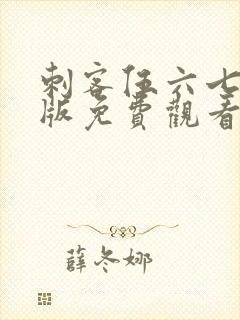 刺客伍六七
版免費觀看
薛冬娜